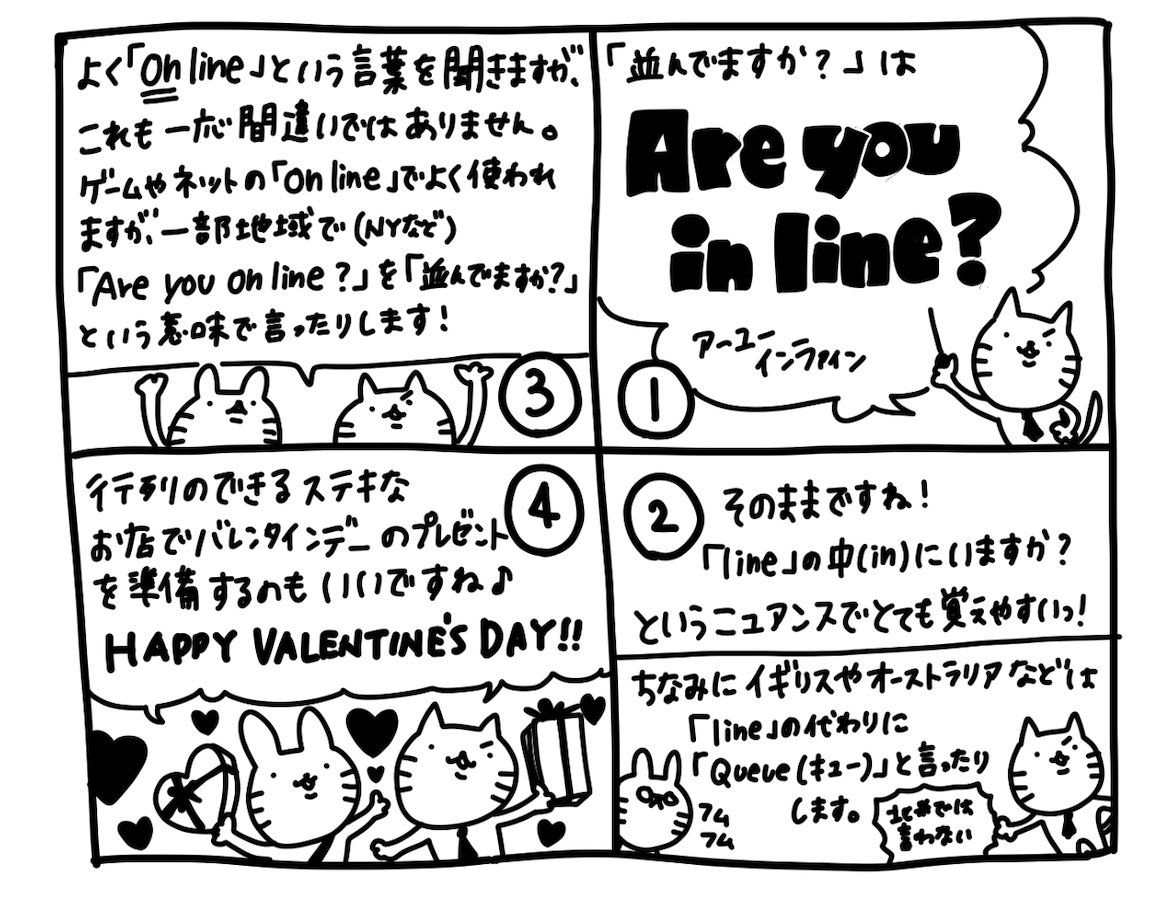 「並んでますか?」は
Are you
in line?
アーユー
インラァイン
1
2
そのままですね!
「line」の中(in)にいますか?
というニュアンスでとても覚えやすいっ!
ちなみにイギリスやオーストラリアなどは
「line」の代わりに
「Queue(キュー)」と言ったり
します。
フム
フム
北米では
言わない
よく「On line」という言葉を聞きますが、
これも一応間違いではありません。
ゲームやネットの「On line」でよく使われ
ますが、一部地域で(NYなど)
「Are you on line?」を「並んでますか?」
という意味で言ったりします!
3
4
行列のできるステキな
お店でバレンタインデーのプレゼント
を準備するのもいいですね♪
HAPPY VALENTINE'S DAY!!